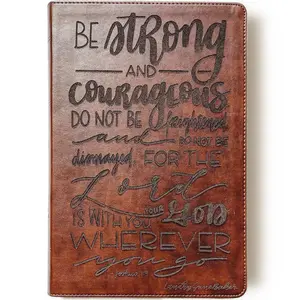 BE strong
AND
courageous
DO NOT BE frightened
and DO NOT BE
dismayed, FOR THE
Lord
YOUR God
IS WITH YOU
WHEREVER
you go